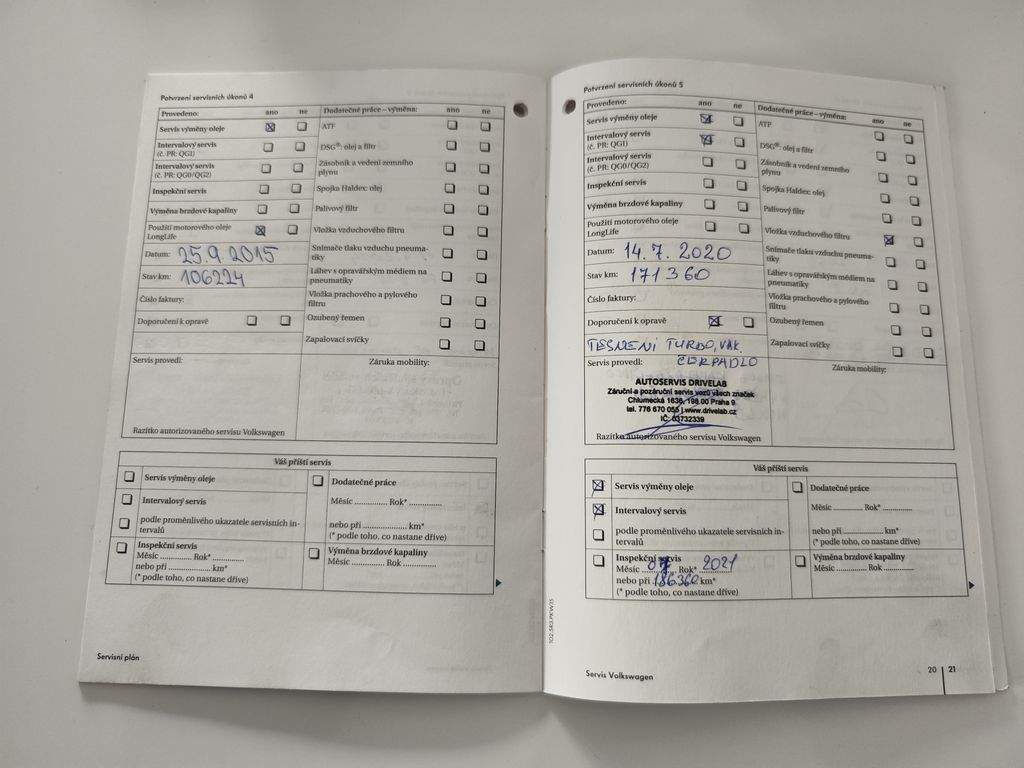 Potvrzení servisních úkonů 4
Provedeno: ano ne Dodatečné práce – výměna: ano ne
Servis výměny oleje ATF
Intervalový servis
(č. PR: QG1) DSG®: olej a filtr
Intervalový servis
(č. PR: QG0/QG2) Zásobník a vedení zemního
plynu
Inspekční servis Spojka Haldex: olej
Výměna brzdové kapaliny Palivový filtr
Použití motorového oleje
LongLife Vložka vzduchového filtru
Datum: 25.9.2015 Snímače tlaku vzduchu pneuma-
tiky
Stav km: 106224 Láhev s opravářským médiem na
pneumatiky
Číslo faktury: Vložka prachového a pylového
filtru
Doporučení k opravě Ozubený řemen
Zapalovací svíčky
Servis provedl: Záruka mobility:
Razítko autorizovaného servisu Volkswagen
Váš příští servis
Servis výměny oleje Dodatečné práce
Intervalový servis Měsíc .............. Rok* ..............
podle proměnlivého ukazatele servisních in-
tervalů nebo při .................. km*
(* podle toho, co nastane dříve)
Inspekční servis Výměna brzdové kapaliny
Měsíc ............ Rok* ............ Měsíc ............ Rok ............
nebo při ................ km*
(* podle toho, co nastane dříve)
Servisní plán
Potvrzení servisních úkonů 5
Provedeno: ano ne Dodatečné práce – výměna: ano ne
Servis výměny oleje ATF
Intervalový servis
(č. PR: QG1) DSG®: olej a filtr
Intervalový servis
(č. PR: QG0/QG2) Zásobník a vedení zemního
plynu
Inspekční servis Spojka Haldex: olej
Výměna brzdové kapaliny Palivový filtr
Použití motorového oleje
LongLife Vložka vzduchového filtru
Datum: 14.7.2020 Snímače tlaku vzduchu pneuma-
tiky
Stav km: 171360 Láhev s opravářským médiem na
pneumatiky
Číslo faktury: Vložka prachového a pylového
filtru
Doporučení k opravě Ozubený řemen
TĚSNĚNÍ TURBO, VAK Zapalovací svíčky
Servis provedl: ČERPADLO Záruka mobility:
AUTOSERVIS DRIVELAB
Záruční a pozáruční servis vozů všech značek
Chlumecká 1636, 198 00 Praha 9
tel. 776 670 055 | www.drivelab.cz
IČ: 03732339
Razítko autorizovaného servisu Volkswagen
Váš příští servis
Servis výměny oleje Dodatečné práce
Intervalový servis Měsíc .............. Rok* ..............
podle proměnlivého ukazatele servisních in-
tervalů nebo při .................. km*
(* podle toho, co nastane dříve)
Inspekční servis Výměna brzdové kapaliny
Měsíc 07 Rok* 2021 Měsíc ............ Rok ............
nebo při 186360 km*
(* podle toho, co nastane dříve)
Servis Volkswagen
20 | 21